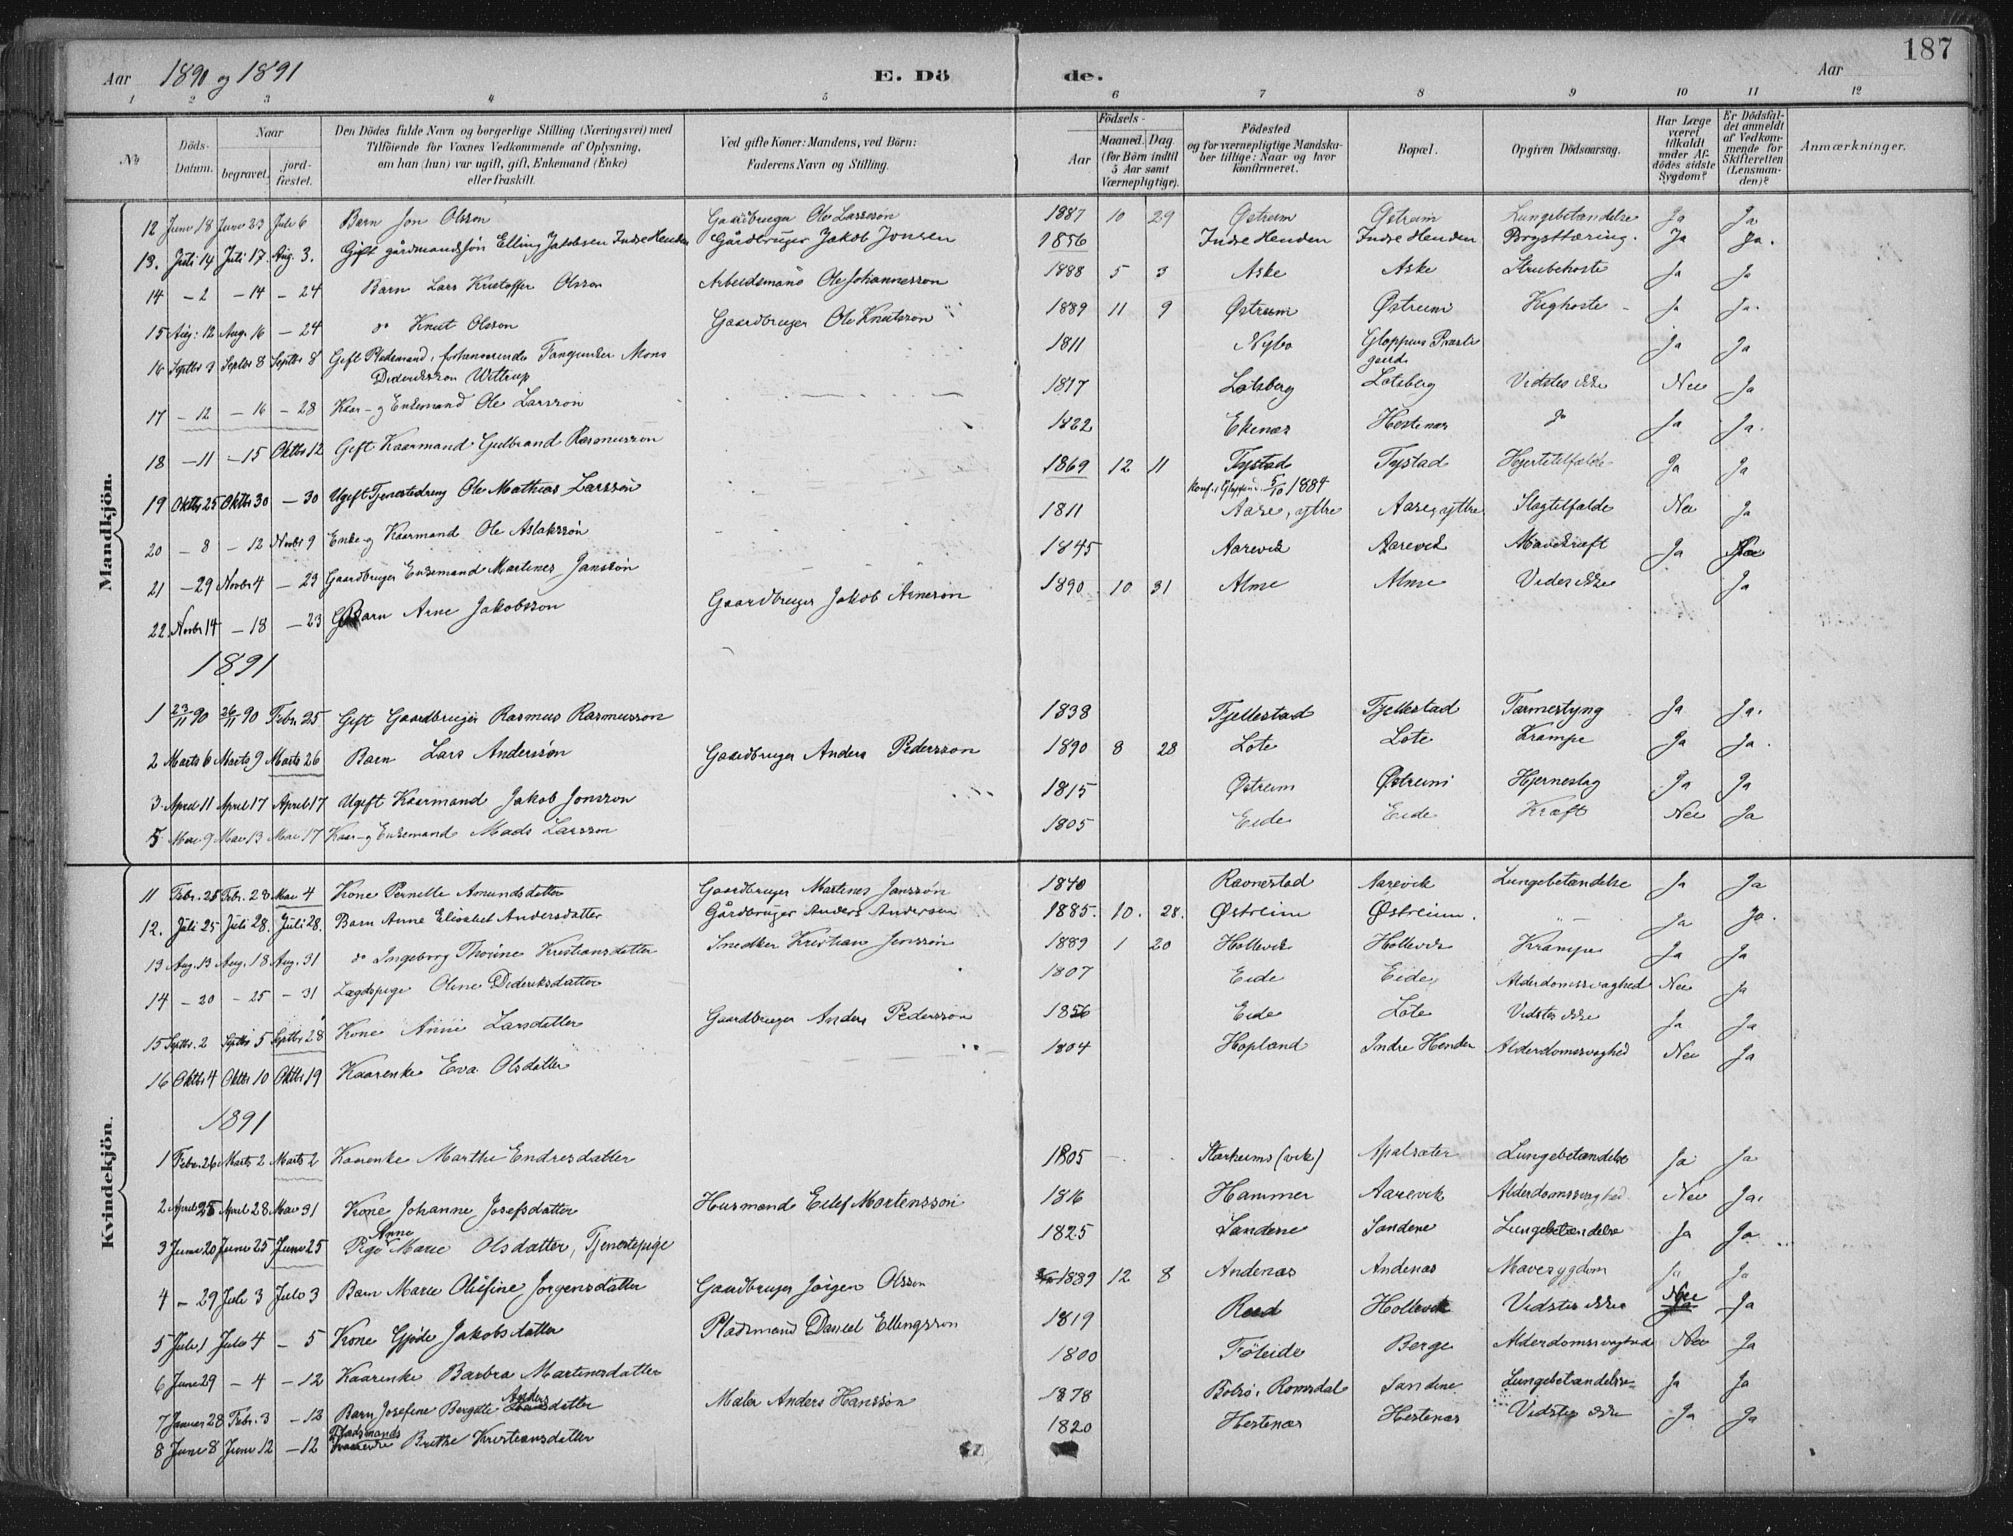 187
Aar 1890 og 1891 E. Dö de. Aar
1 2 3 4 5 6 7 8 9 10 11 12
No
Döds-Datum.
Naar begravet. jord-fæstet.
Den Dödes fulde Navn og borgerlige Stilling (Næringsvei) med Tilföiende for Voxnes Vedkommende af Oplysning, om han (hun) var ugift, gift, Enkemand (Enke) eller fraskilt.
Ved gifte Koner: Mandens, ved Börn: Faderens Navn og Stilling.
Födsels-
Aar Maaned. Dag. (for Börn indtil 5 Aar samt Værnepligtige).
Födested og for værnepligtige Mandska-ber tillige: Naar og hvor konfirmeret.
Bopæl.
Opgiven Dödsaarsag.
Har Læge været tilkaldt under Af-dödes sidste Sygdom?
Er Dödsfal-det anmeldt af Vedkom-mende for Skifteretten (Lensman-den)?
Anmærkninger.
Mandkjön.
12 Juni 18 Juni 23 Juli 6 Barn Jon Olsson Gaardbruger Ole Larsson 1887 10 29 Østreim Østreim Lungebetændelse Ja Ja
13. Juli 14 Juli 17. Aug. 3. Gift gårdmandssøn Elling Jakobsen Indre Henden Gårdbruger Jakob Jonsen 1856 Indre Henden Indre Henden Brysttæring. Ja Ja.
14 – 2 – 14 – 24 Barn Lars Kristoffer Olsson Arbeidsmand Ole Johannesson 1888 5 3 Aske Aske Strubehoste Ja Ja
15 Aug. 12 Aug. 16 – 24 do Knut Olsson Gaardbruger Ole Knutsson 1889 11 9 Østreim Østreim Kighoste – Ja Ja.
16 Septbr 3 Septbr 8 Septbr 8 Gift Pladsmand, forhenværende Mons 1811 Nybø Gloppens Præste Ja Ja
Dideriksson Wittrup gaard
17 – 12 – 16 – 28 Kaar- og Enkemand Ole Larsson 1817 Lotsberg Lotsberg Vidstes ikke Nei Ja
18 – 11 – 15 Oktbr 12 Gift Kaarmand Gulbrand Rasmusson 1822 Ekenæs Hestenæs do Ja Ja.
19 Oktbr 25 Oktbr 30 – 30 Ugift Tjenestedreng Ole Mathias Larsson 1869 12 11 Tystad Tystad Hjertetilfælde Ja Ja
Konf. i Gloppen 5/10 1884
20 – 8 – 12 Novbr 9 Enke- og Kaarmand Ole Aslaksson 1811 Aase, ytre Aase, ytre Slagtilfælde Nei Ja
21 – 29 Novbr 4 – 23 Gaardbruger Enkemand Martines Jansson 1845 Aarevik Aarevik Mavekræft Ja Ja
22 Novbr 14 – 18 – 23 Barn Arne Jakobsson Gaardbruger Jakob Arneson 1890 10 31 Alme Alme Vides ikke Ja
1891
1 23/11 90 26/11 90 Febr. 25 Gift Gaardbruger Rasmus Rasmusson 1838 Fjellestad Fjellestad Tarmeslyng Ja Ja.
2 Marts 6 Marts 9 Marts 26 Barn Lars Andersson Gaardbruger Anders Pedersson 1890 8 28 Lote Lote Krampe Ja Ja.
3 April 11 April 17 April 17 Ugift Kaarmand Jakob Jonsson 1815 Østreim Østreim Hjerneslag Ja Ja
5 Mai 9 Mai 13 Mai 17 Kaar- og Enkemand Mads Larsson 1805 Eide Eide Kræft Nei Ja
Kvindekjön.
11 Febr. 25 Febr. 28 Mai 4 Kone Pernelle Amundsdatter Gaardbruger Martines Jansson 1840 Ravnestad Aarevik Lungebetændelse Ja Ja
12. Juli 25 Juli 28. Juli 28. Barn Anne Elisabet Andersdatter Gårdbruger Anders Andersen 1885. 10. 28. Østreim Østreim. – " – Ja Ja.
13 Aug. 13 Aug. 18 Aug. 31 do Ingeborg Thorine Kristiansdatter Snedker Kristian Jonsson 1889 1 20 Hollevik Hollevik Krampe Ja Ja
14 – 20 – 25 – 31 Lægdspige Oline Dideriksdatter 1807 Eide Eide, Alderdomssvaghed Nei Ja
15 Septbr. 2 Septbr 5 Septbr 28 Kone Anne Larsdatter Gaardbruger Anders Pedersson 1856 Eide Lote Vidstes ikke Ja Ja
16 Oktbr 4 Oktbr 10 Oktbr 19 Kaarenke Eva Olsdatter 1804 Hopland Indre Henden Alderdomssvaghed Nei Ja
1891
1 Febr. 26 Marts 2 Marts 2 Kaarenke Marthe Endresdatter 1805 Starheims (vik) Apalsæter Lungebetændelse Ja Ja
2 April 25 April 28 Mai 31 Kone Johanne Josefsdatter Husmand Eilef Martensson 1816 Hammer Aarevik Alderdomssvaghed Nei Ja.
3 Juni 20 Juni 25 Juni 25 Pige Anne Marie Olsdatter, Tjenestepige 1825 Sandene Sandene Lungebetændelse Ja Ja
4 – 29 Juli 3 Juli 3 Barn Marie Olufine Jørgensdatter Gaardbruger Jørgen Olsson 1889 12 8 Andenæs Andenæs Mavesygdom Ja Ja
5 Juli 1 Juli 4 – 5 Kone Gjøde Jakobsdatter Pladsmand Daniel Ellingsson 1819 Reed Hollevik Vidstes ikke Nei Ja
6 Juni 29 – 4 – 12 Kaarenke Barbra Martinusdatter 1800 Føleide Berge Alderdomssvaghed Nei Ja
7 Januar 28 Febr. 3 – 12 Barn Josefine Bergitte Andersdatter Maler Anders Hansson 1878 Bolsø i Romsdal Sandene Lungebetændelse Ja Ja
8 Juni 8 Juni 12 – 12 Pladsmands Brithe Kristiansdatter 1820 Hestenæs Hestenæs Vidstes ikke Ja Ja